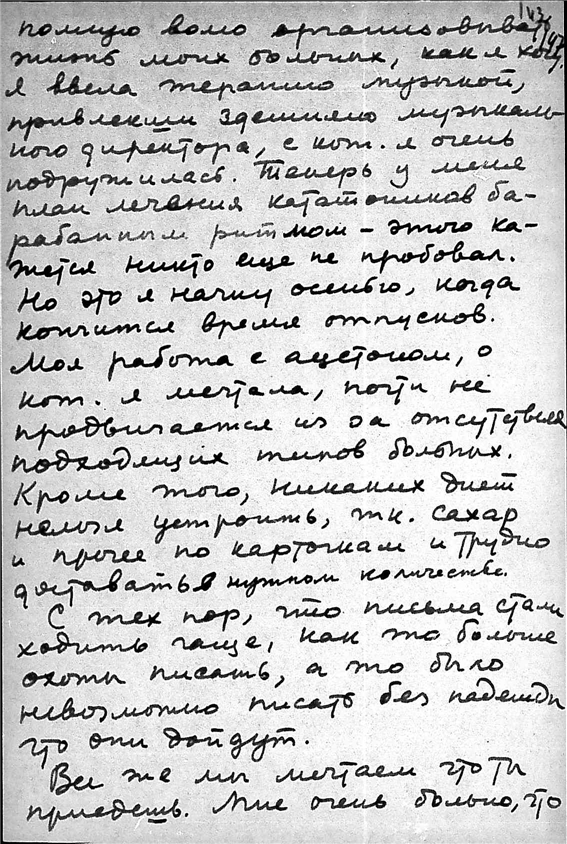 полную волю организовывать
жизнь моих больных, как я хочу.
Я ввела терапию музыкой,
привлекши здешнего музыкаль-
ного директора, с кот. я очень
подружилась. Теперь у меня
план лечения кататоников ба-
рабанным ритмом – этого ка-
жется никто еще не пробовал.
Но это я начну осенью, когда
кончится время отпусков.
Моя работа с ацетоном, о
кот. я мечтала, почти не
продвигается из за отсутствия
подходящих типов больных.
Кроме того, никаких диет
нельзя устроить, т.к. сахар
и прочее по карточкам и трудно
доставать в нужном количестве.
С тех пор, что письма стали
ходить чаще, как то больше
охоты писать, а то было
невозможно писать без надежды
что они дойдут.
Все же мы мечтаем что ты
приедешь. Мне очень больно, что